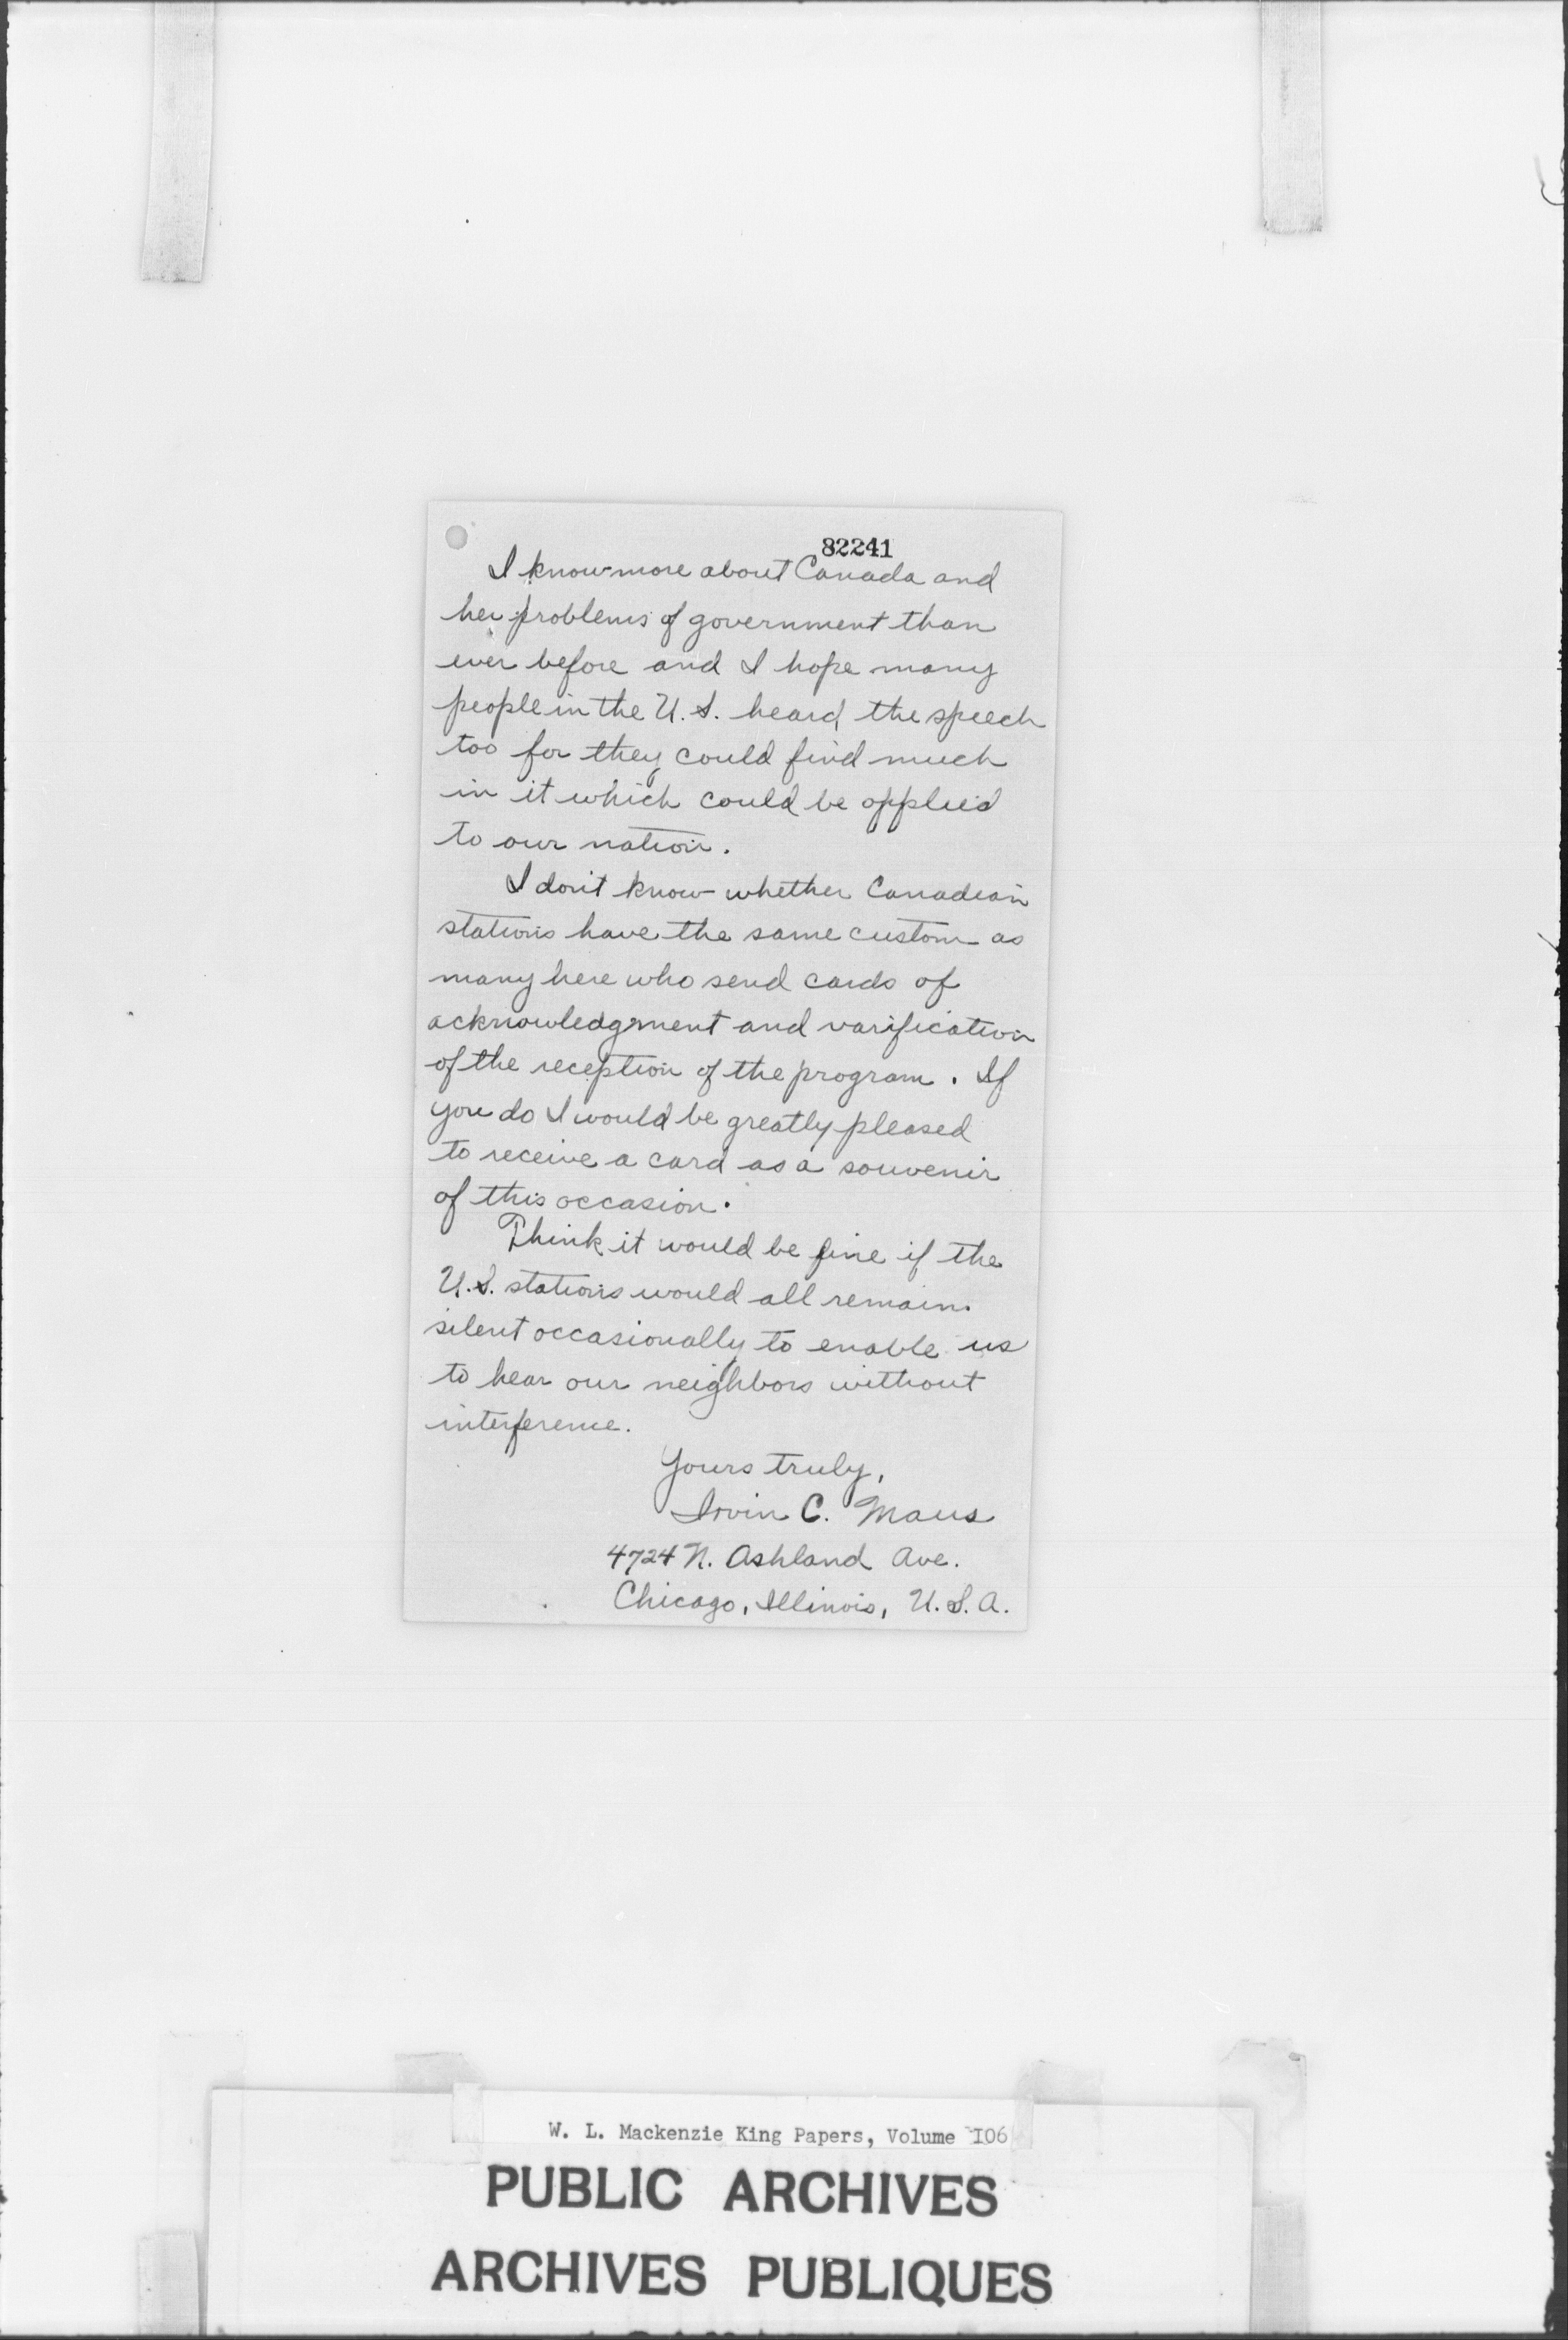 82241
I know more about Canada and
her problems of government than
ever before and I hope many
people in the U.S. heard the speech
too for they could find much
in it which could be applied
to our nation.
I don't know whether Canadian
stations have the same custom as
many here who send cards of
acknowledgment and varification
of the reception of the program. If
you do I would be greatly pleased
to receive a card as a souvenir
of this occasion.
Think it would be fine if the
U.S. stations would all remain
silent occasionally to enable us
to hear our neighbors without
interference.
Yours truly,
Irvin C. Maus
4724 N. Ashland Ave.
Chicago, Illinois, U.S.A.
W. L. Mackenzie King Papers, Volume 106
PUBLIC ARCHIVES
ARCHIVES PUBLIQUES